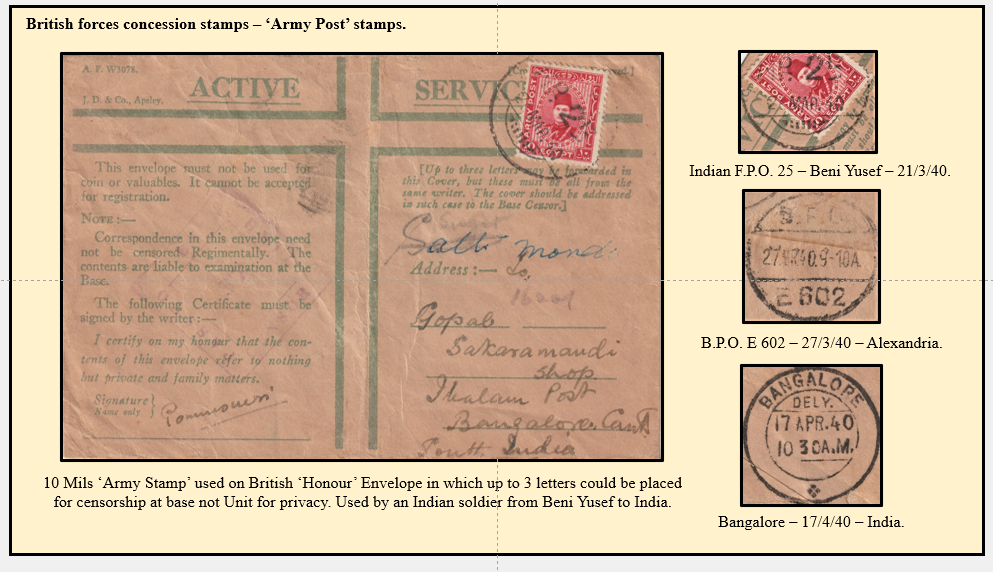 British forces concession stamps – ‘Army Post’ stamps.
A. F. W3078.
J. D. & Co., Apsley.
ACTIVE
SERVIC
This envelope must not be used for
coin or valuables. It cannot be accepted
for registration.
NOTE :—
Correspondence in this envelope need
not be censored Regimentally. The
contents are liable to examination at the
Base.
The following Certificate must be
signed by the writer :—
I certify on my honour that the con-
tents of this envelope refer to nothing
but private and family matters.
Signature
Name only
[Up to three letters may be forwarded in
this Cover, but these must be all from the
same writer. The cover should be addressed
in such case to the Base Censor.]
Address :—
Gopal
Sakaramandi
shop
Post
Bangalore. Cant
South India
10 Mils ‘Army Stamp’ used on British ‘Honour’ Envelope in which up to 3 letters could be placed
for censorship at base not Unit for privacy. Used by an Indian soldier from Beni Yusef to India.
MAR
Indian F.P.O. 25 – Beni Yusef – 21/3/40.
E 602
B.P.O. E 602 – 27/3/40 – Alexandria.
BANGALORE
DELY.
17 APR.40
10 30A.M.
Bangalore – 17/4/40 – India.